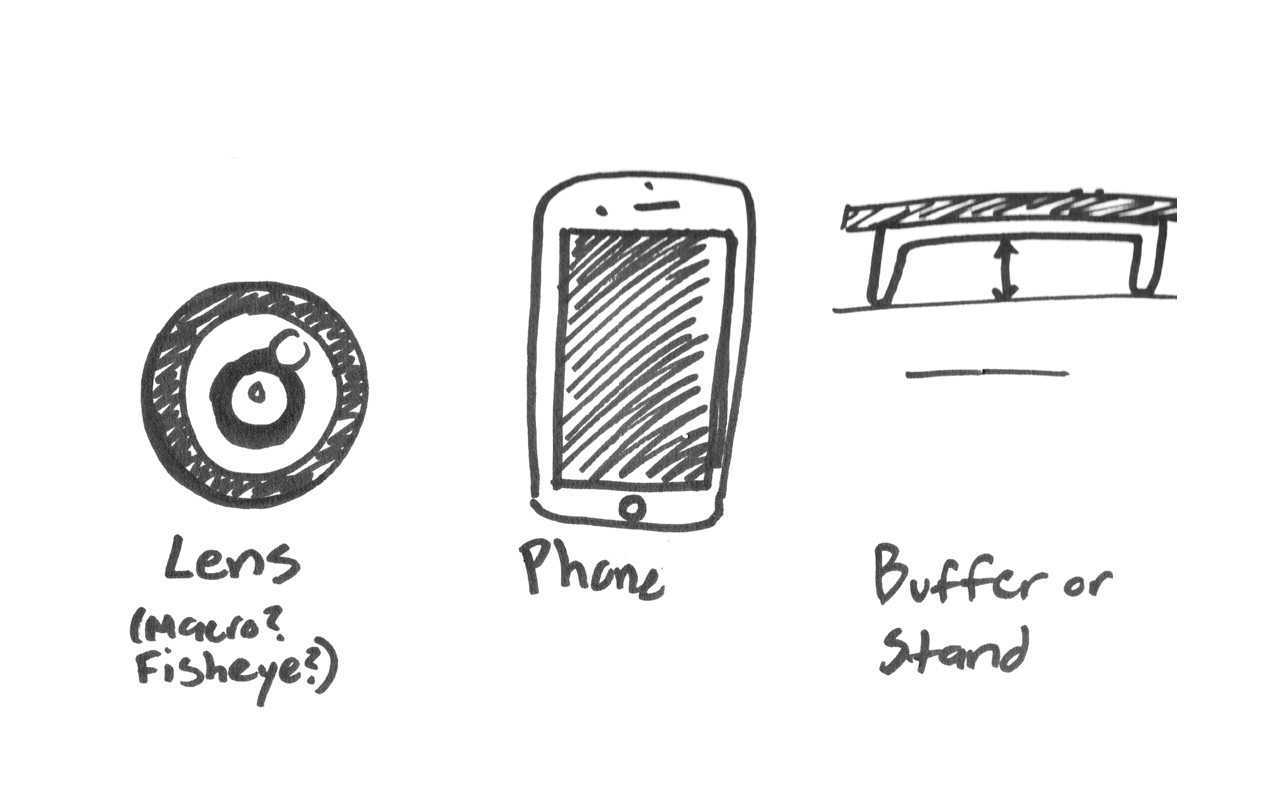 Lens
(Macro?
Fisheye?)
Phone
Buffer or
Stand